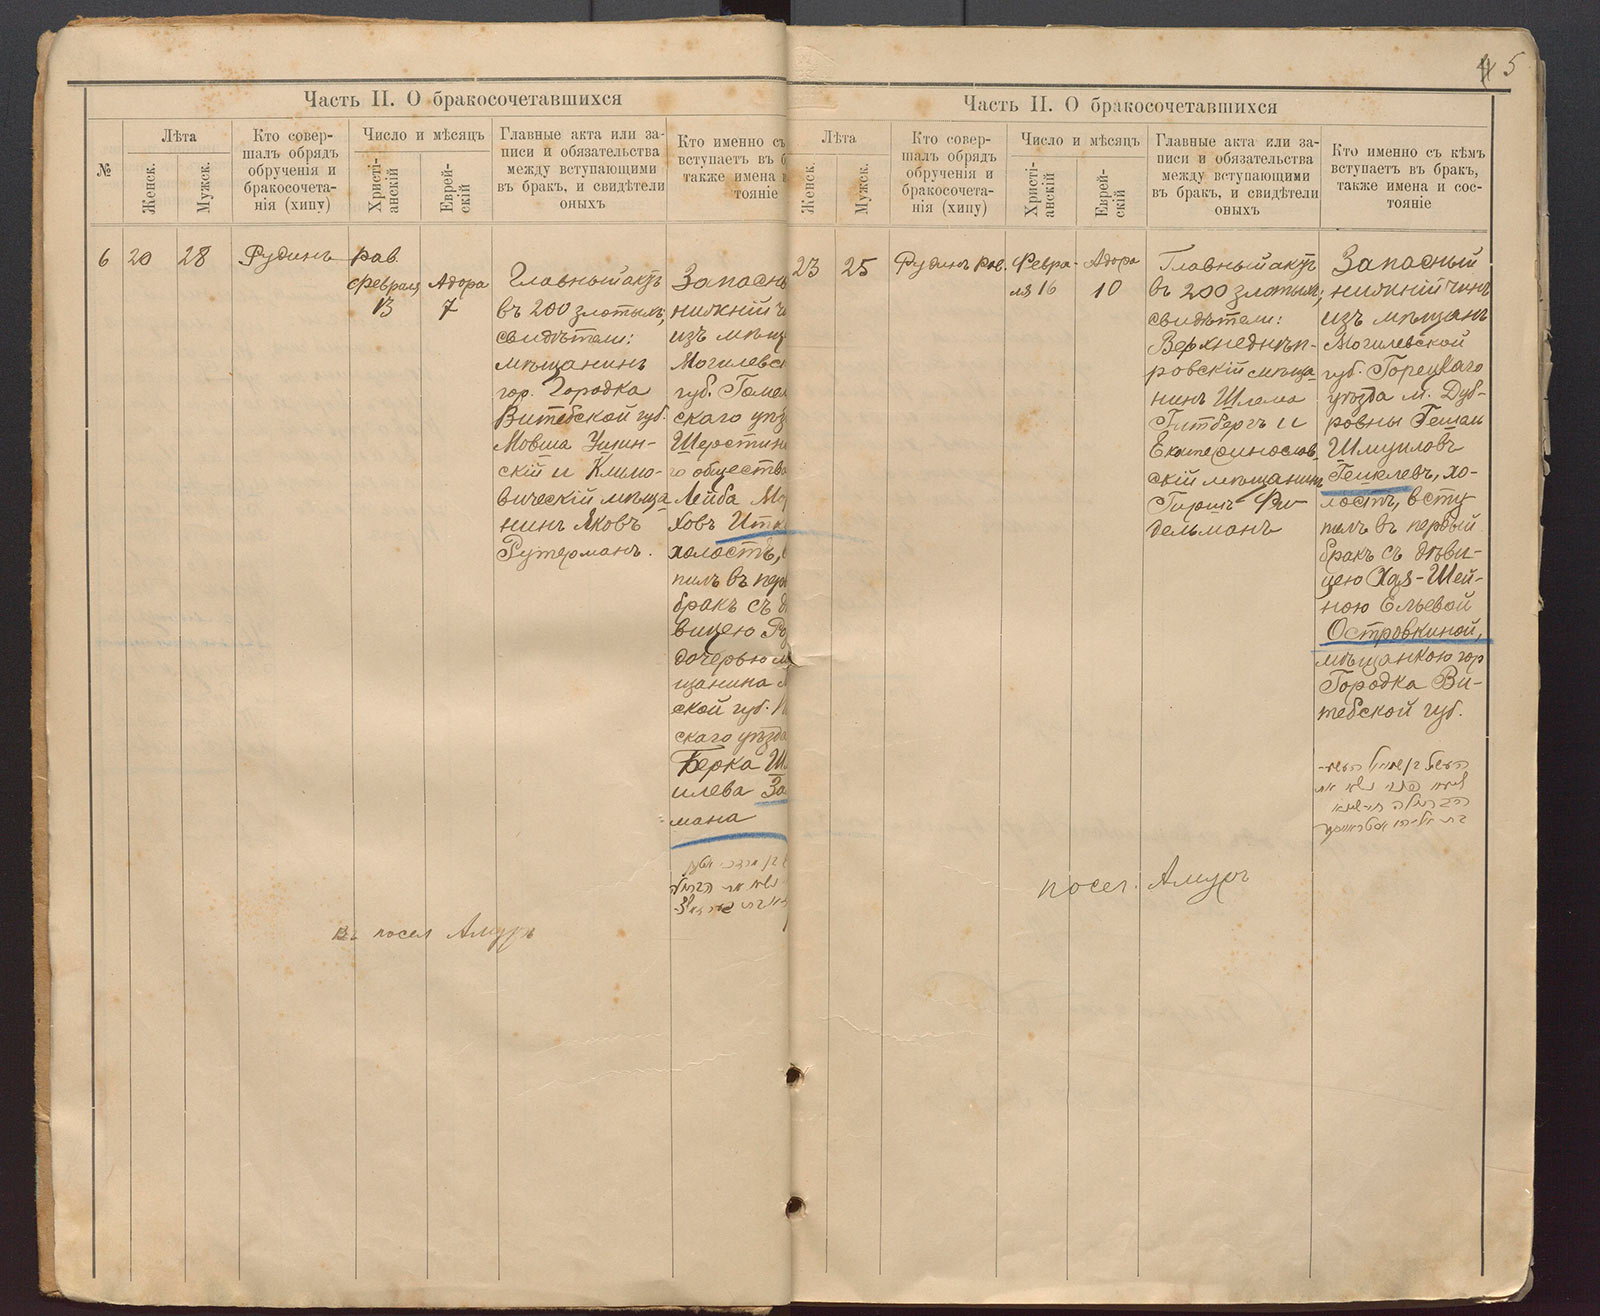 Часть II. О бракосочетавшихся
№
Лѣта
Женск.
Мужск.
Кто совер-
шалъ обрядъ
обрученія и
бракосочета-
нія (хипу)
Число и мѣсяцъ
Христі-
анскій
Еврей-
скій
Главные акта или за-
писи и обязательства
между вступающими
въ бракъ, и свидѣтели
оныхъ
Кто именно съ
вступаетъ въ б
также имена и
тояніе
6
20
28
Рудинъ рав
февраля
13
Адора
7
Главный актъ
въ 200 злотыхъ;
свидѣтели:
мѣщанинъ
гор. Городка
Витебской губ.
Мовша
скій и Климо-
вическій мѣща
нинъ Яковъ
Рутерманъ.
Запасн
нижній ч
изъ мѣщ
Могилевс
губ. Гомел
скаго уѣз
Шерстин
го общества
Лейба Мо
ховъ Итк
холостъ,
пилъ въ пер
бракъ съ д
вицею Ро
дочерью м
щанина
ской губ.
скаго уѣзда
Берка Ш
илева За
мана
въ посел Амуръ
4 5
Часть II. О бракосочетавшихся
Лѣта
Женск.
Мужск.
Кто совер-
шалъ обрядъ
обрученія и
бракосочета-
нія (хипу)
Число и мѣсяцъ
Христі-
анскій
Еврей-
скій
Главные акта или за-
писи и обязательства
между вступающими
въ бракъ, и свидѣтели
оныхъ
Кто именно съ кѣмъ
вступаетъ въ бракъ,
также имена и сос-
тояніе
23
25
Рудинъ рав.
Февра-
ля 16
Адора
10
Главный актъ
въ 200 злотыхъ;
свидѣтели:
Верхнеднѣп-
ровскій мѣща-
нинъ Шлема
Гитбергъ и
Екатеринослав
скій мѣщанинъ
Гиршъ Фи-
дельманъ
Запасный
нижній чинъ
изъ мѣщанъ
Могилевской
губ. Горецкаго
уѣзда м. Дуб-
ровны Гешаи
Шмуиловъ
Гейклевъ, хо-
лостъ, всту
пилъ въ первый
бракъ съ дѣви-
цею Хая-Шей-
ною Ельевой
Островкиной,
мѣщанкою гор
Городка Ви-
тебской губ.
посел. Амуръ